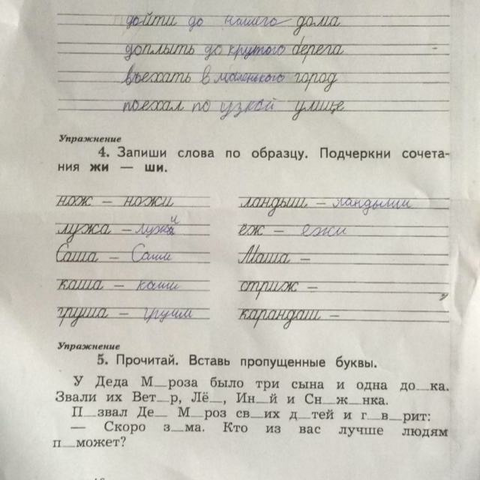 дойти до нашего дома
доплыть до крутого берега
въехать в маленького город
поехал по узкой улице
Упражнение
4. Запиши слова по образцу. Подчеркни сочета-
ния жи — ши.
нож — ножи ландыш — ландыши
лужа — лужи ёж — ежи
Саша — Саши Маша —
каша — каши стриж —
груша — груши карандаш —
Упражнение
5. Прочитай. Вставь пропущенные буквы.
У Деда М_роза было три сына и одна до_ка.
Звали их Вет_р, Лё_, Ин_й и Сн_ж_нка.
П_звал Де_ М_роз св_их д_тей и г_в_рит:
— Скоро з_ма. Кто из вас лучше людям
п_может?